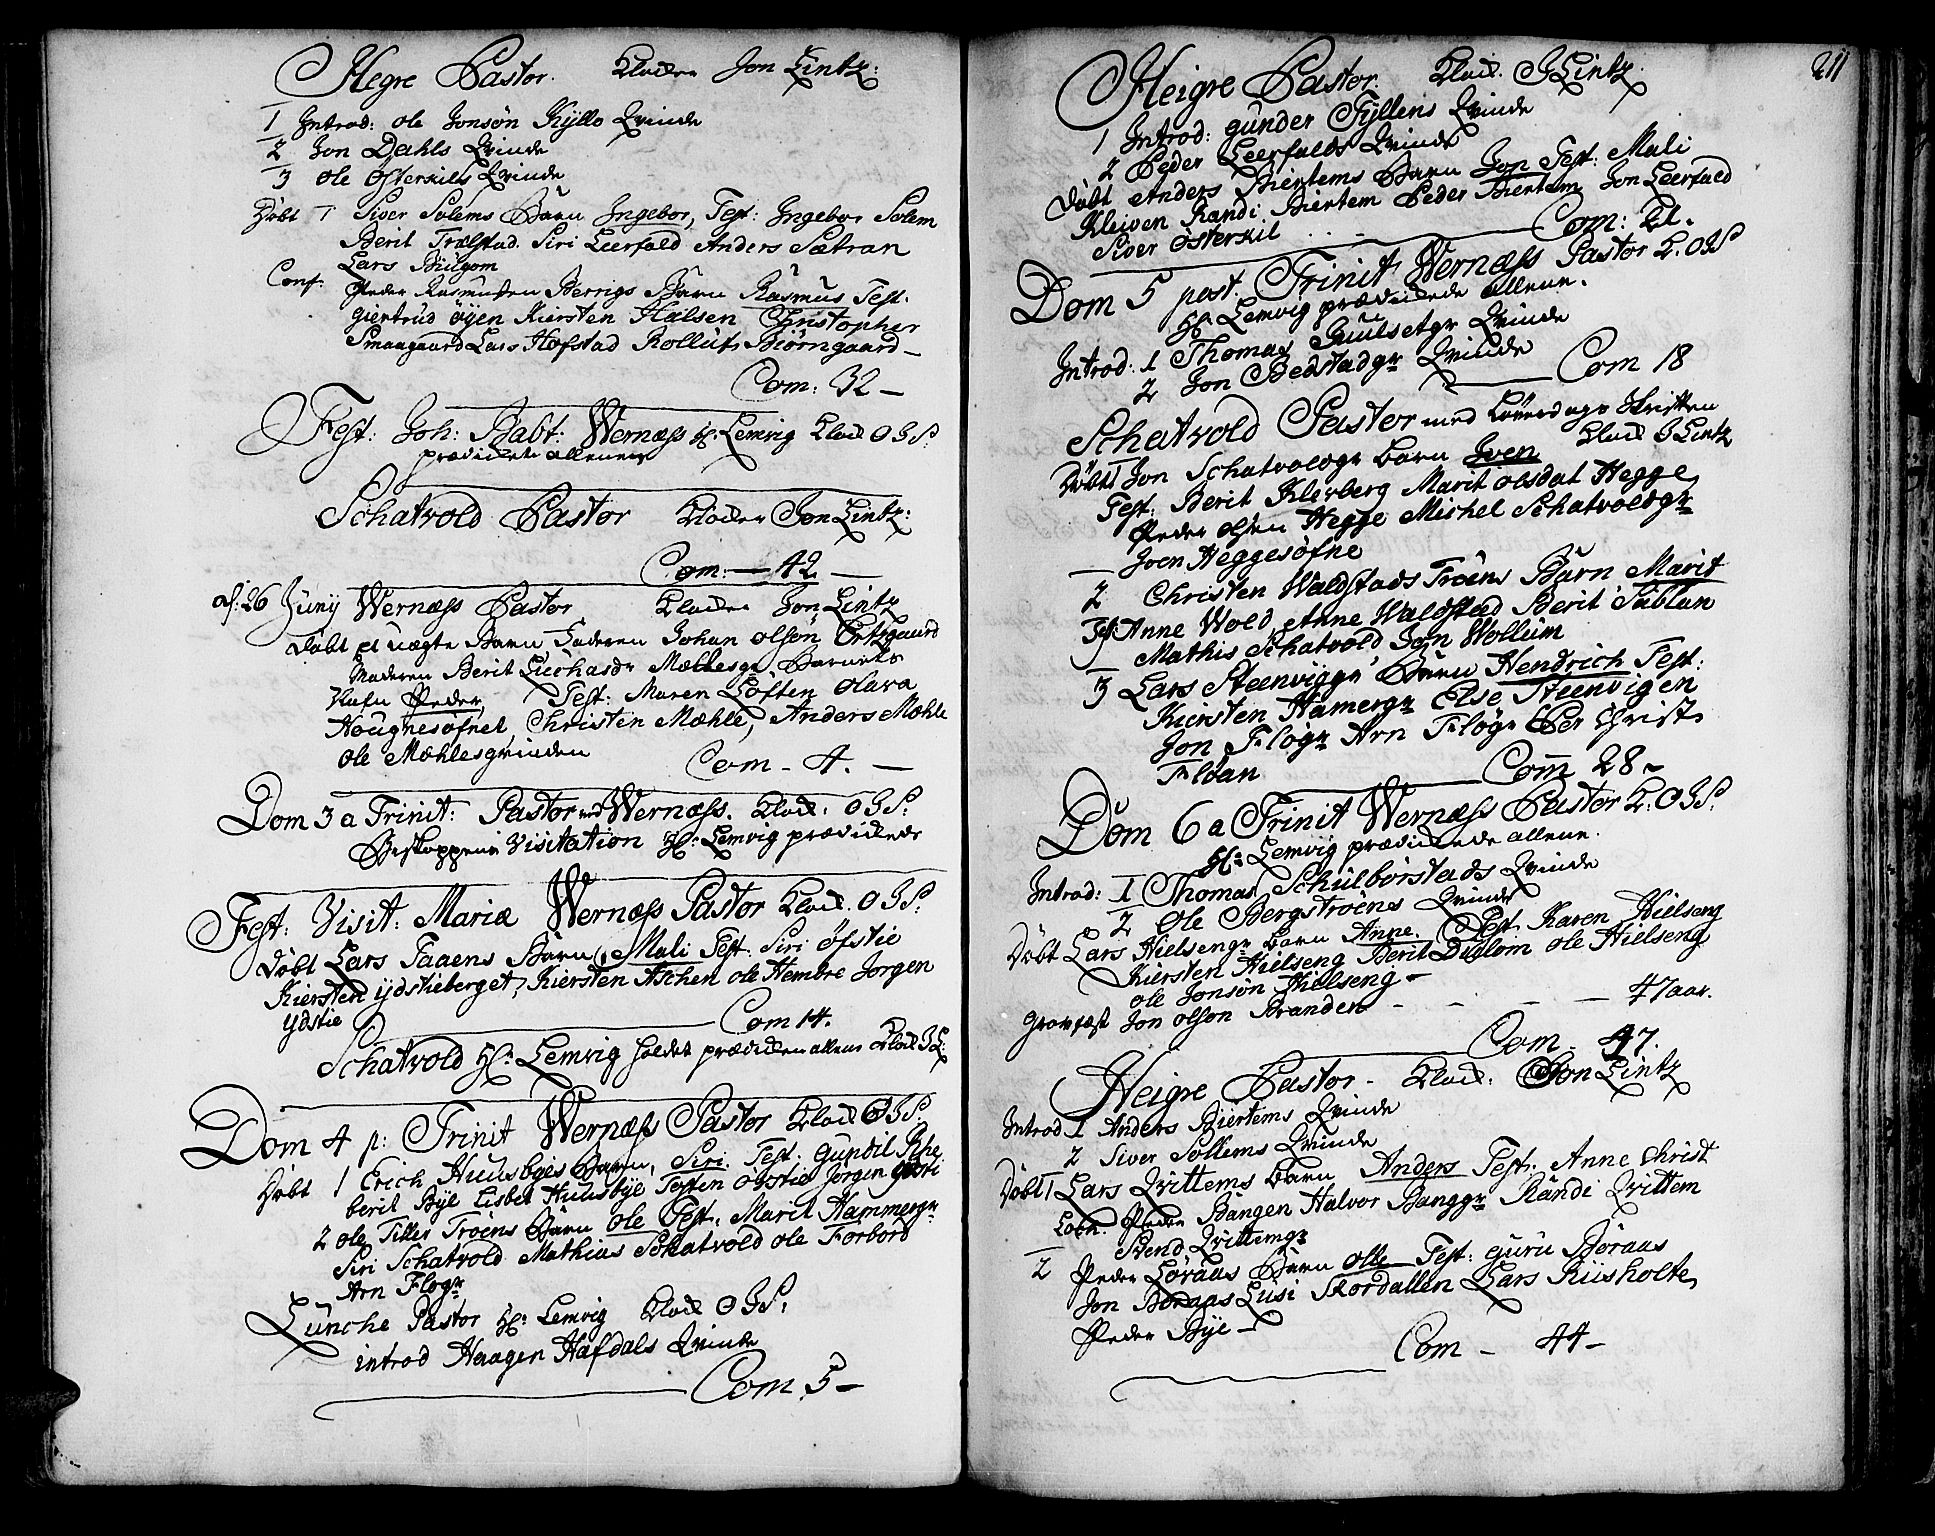 Hegre Pastor. Klocker Jon Lintz:
1 Introd: ole Jonsön Kyllo Qvinde
2 Jon Dahls Qvinde
3 ole Østerkils Qvinde
Döbt 1 Siver Solems Barn Ingebor, Test: Ingebor Solem
Berit Trælstad. Siri Leerfald Anders Sætran
Lars Biilgom
Conf: Peder Rasmusen Berrigs Barn Rasmus Test.
giertrud öyen Kiersten Halsen Christopher
Smaagaard Lars Hofstad Rolluf Biörngaard –
Com: 32 –
Fest: Joh: Babt: Wernæss Hr: Lemvig Klock OBS:
prædikede allene
Schatvold Pastor Klocker Jon Lintz:
Com: — 42 —
d: 26 Juny Wernæss Pastor Klocker Jon Lintz
Döbt et uægte Barn Faderen Johan olsön
Moderen Berit Mæhlesgr Barnets
Nafn Peder, Test: Maren Löften olava
Hougnesöfnet, Christen Mæhle, Anders Mæhle
ole Mæhlesgvinden
Com – 4. —
Dom 3 a Trinit: Pastor Wernæss. Klock: OBS:
Biskoppens Visitation Hr: Lemvig prædikede
Fest: Visit: Mariæ Wernæss Pastor Klock. OBS:
Döbt Lars Faaens Barn, Mali Test. Siri öfstie
Kiersten ydstieberget, Kiersten Aschen ole Hembre Jorgen
ydstie
Com 14.
Schatvold Hr: Lemvig holdet prædiken allene Klock JL:
Dom 4 p: Trinit Wernæss Pastor Klock OBS:
Döbt 1 Erich Huusbyes Barn, Siri. Test: gundil
berit Bye Lisbet Huusbye Torsten Jörgen
2 ole Tiller Tröens Barn ole Test. Marit Hammergr
Siri Schatvold Mathias Schatvold ole Forbord
Arn Flogr
Lünche Pastor Hr: Lemvig Klock OBS:
introd Haagen Hafdals Qvinde
Com 5 –
211
Heigre Pastor. Klock. J Lintz.
1 Introd: gunder Fyllens Qvinde
2 Peder Leerfalds Qvinde
Döbt Anders Biertems Barn Jon Test: Mali
Kleiven Randi Biertem Peder Biertem Jon Leerfald
Siver österkil - - - Com: 21.
Dom 5 post: Trinit Wernæss Pastor K: OBS
Hr Lemvig prædikede allene.
Introd: 1 Thomas Qvinde
2 Jon Bedstadgr Qvinde
Com 18
Schatvold Pastor med Löverdags Skriften
Klock J Lintz
Döbt 1 Jon Schatvoldgr Barn Iven
Test: Berit Klerberg Marit olsdat Hegge
Peder olsen Hegge Michel Schatvoldgr
— Joen Heggesöfne
2 Christen Waldstads Tröens Barn Marit
Test: Anne Wold Anne Waldstad Berit Sablan
Mathis Schatvold Jon Wollum
3 Lars Steenviggr Barn Hendrich Test:
Kiersten Hamergr Else Steenvigen
Jon Flogr Arn Flogr Per Christ
Flöan
Com 28 –
Dom 6 a Trinit Wernæss Pastor K: OBS:
Hr: Lemvig prædikede allene.
Introd: 1 Thomas Schülborstads Qvinde
2 Ole Bergströens Qvinde
Döbt Lars Hielsengr Barn Anne. Test Karen Hielseng
Kiersten Hielseng Berit Duglom ole Hielseng
ole Jonsön Hielseng –
Gravfæst Jon olson Branden - - - — 47 aar.
Com – 47.
Heigre Pastor – Klock: Jon Lintz
Introd 1 Anders Biertems Qvinde
2 Siver Sollems Qvinde
Döbt 1 Lars Qvittems Barn Anders Test: Anne Christ
Peder Bangen Halvor Banggr Randi Qvittem
Stend Qvittemgr
2 Peder Loraas Barn olle Test: guru Boraas
Jon Boraas Lusi Skordallen Lars Riisholte,
Peder Bye –
Com – 44 –